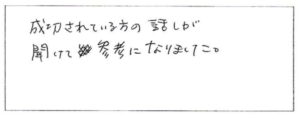 成功されている方の話しが
聞けて参考になりました。